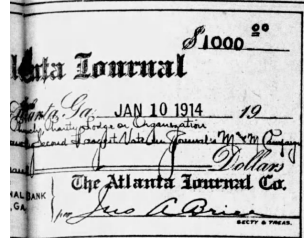 $1000 00
lanta Journal
Atlanta, Ga. JAN 10 1914 19
Charity Lodge or Organization
Second Largest Vote in Journal's M & M
Dollars
The Atlanta Journal Co.
NAL BANK
, GA.
per Jno A Brice
SECTY & TREAS.